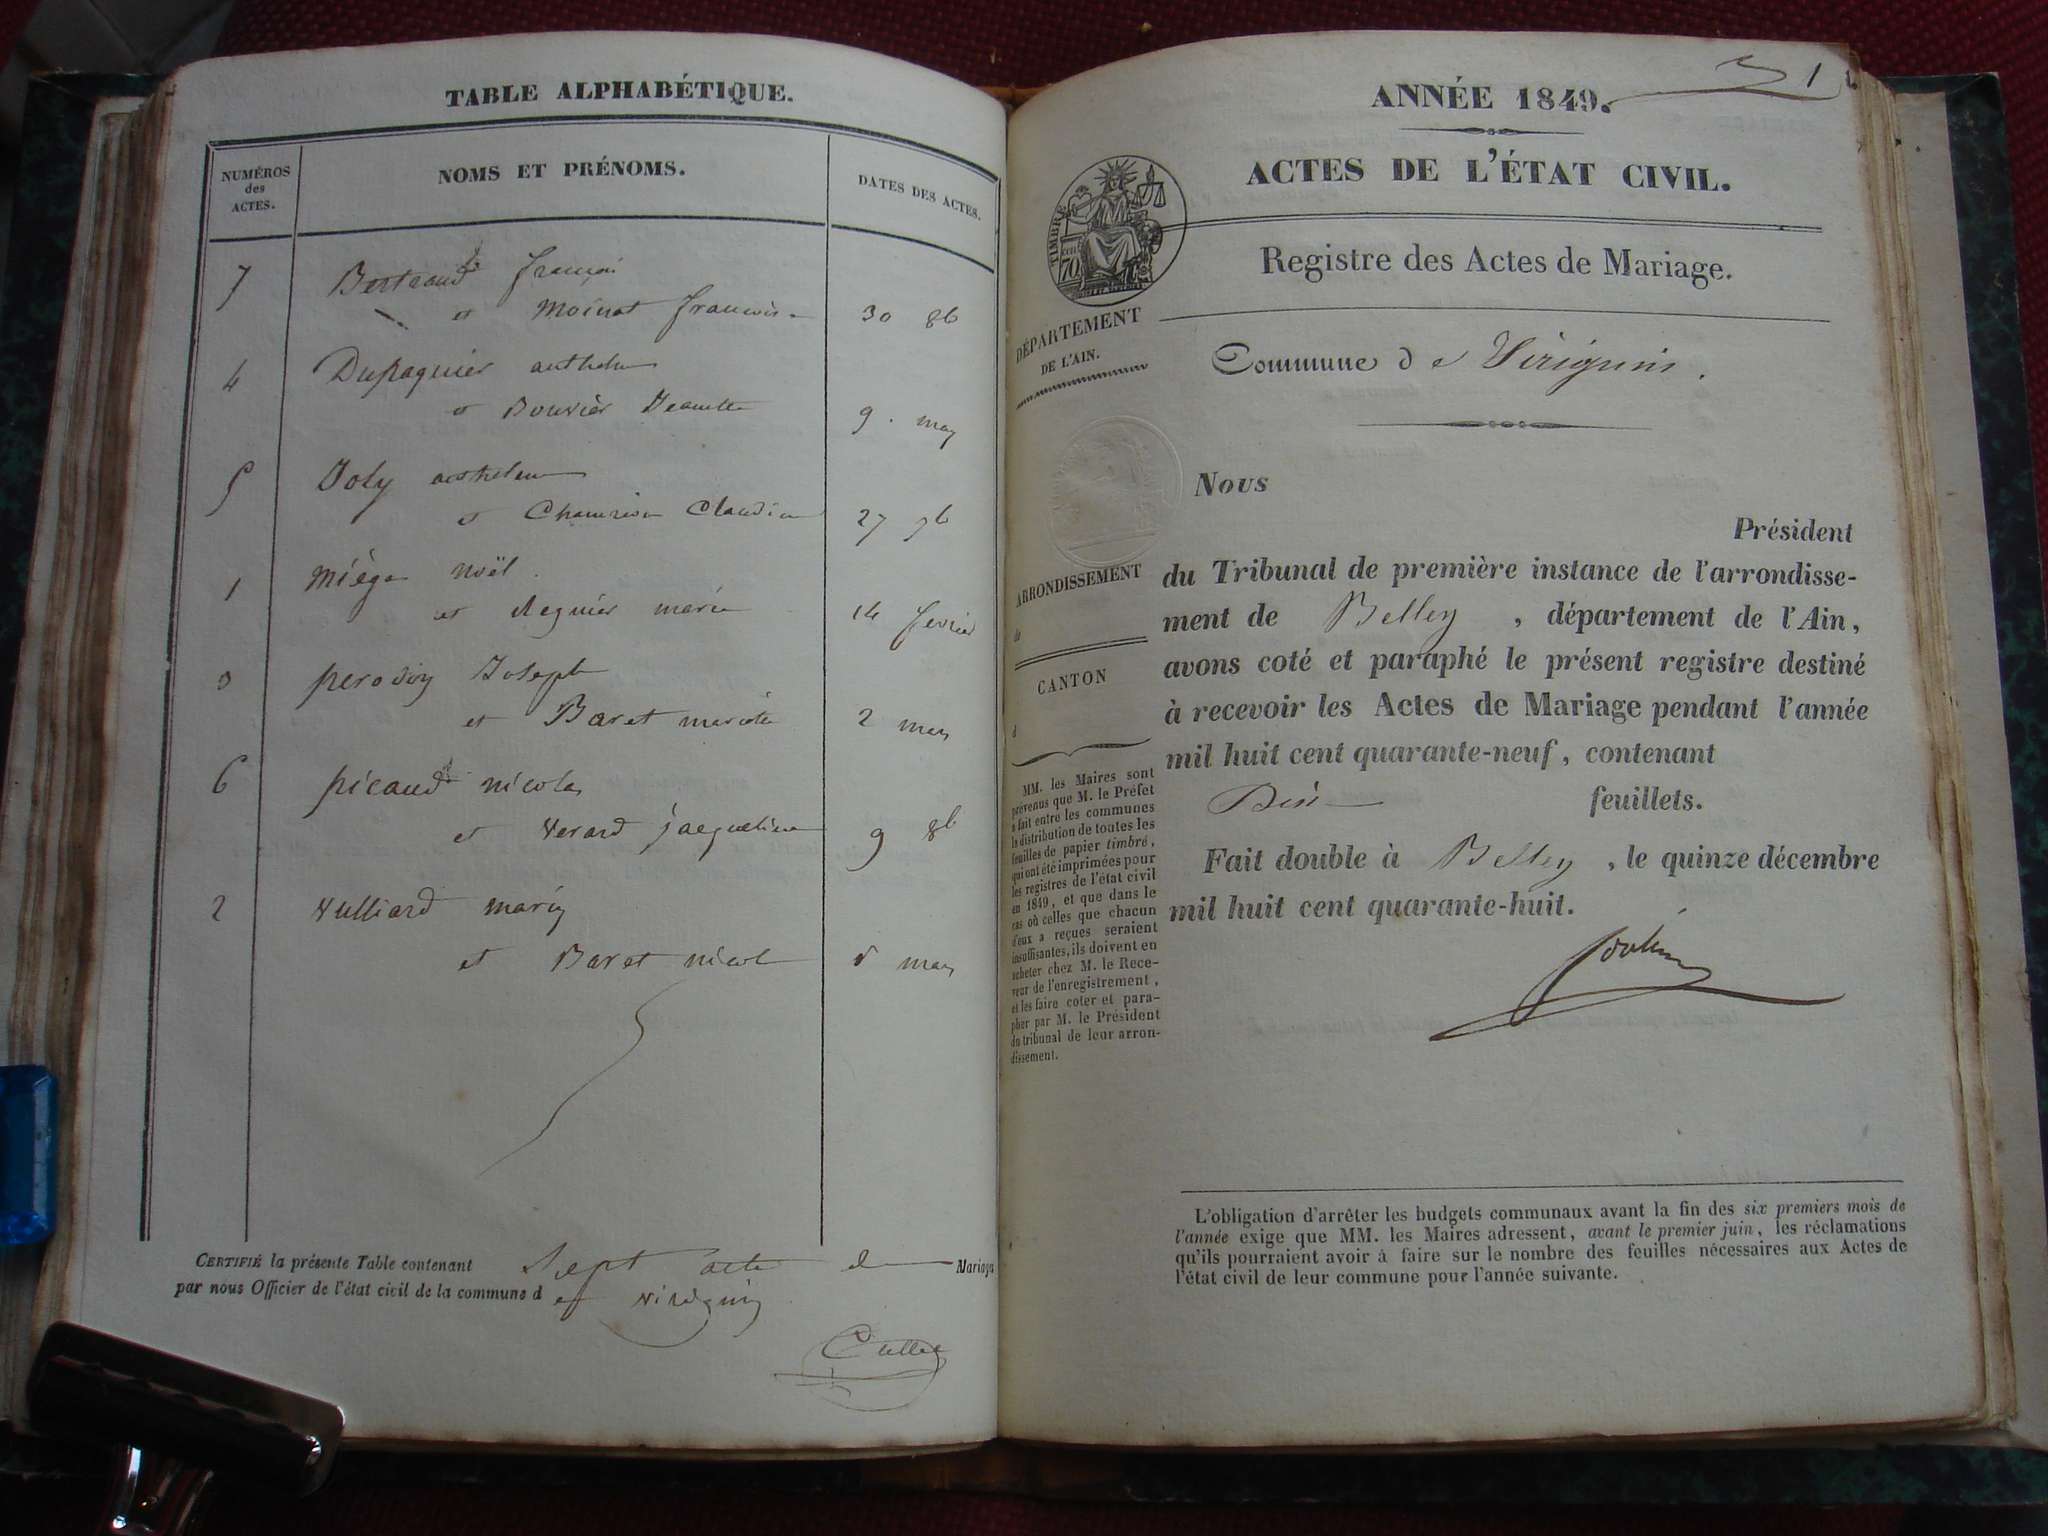 TABLE ALPHABÉTIQUE.
NUMÉROS
des
ACTES.
NOMS ET PRÉNOMS.
DATES DES ACTES.
7 Bertrand françois
et Moinat francoise 30 8b
4 Dupasquier anthelme
et Bouvier Jeanette 9 . may
5 Joly anthelme
et Claudine 27
1 Miège Noël
et Regnier marie 14 fevrier
3 perodin Joseph
et Baret mariette 2
6 picaud nicolas
et Verard jacqueline 9 8b
2 Vulliard
et Baret nicol
CERTIFIÉ la présente Table contenant Sept acte de Mariage
par nous Officier de l'état civil de la commune d e virignin
1
ANNÉE 1849.
ACTES DE L'ÉTAT CIVIL.
TIMBRE
70
Registre des Actes de Mariage.
DÉPARTEMENT
DE L'AIN.
Commune d e Virignin .
ARRONDISSEMENT
de
CANTON
d
MM. les Maires sont
prévenus que M. le Préfet
a fait entre les communes
la distribution de toutes les
feuilles de papier timbré,
qui ont été imprimées pour
les registres de l'état civil
en 1849, et que dans le
cas où celles que chacun
d'eux a reçues seraient
insuffisantes, ils doivent en
acheter chez M. le Rece-
veur de l'enregistrement,
et les faire coter et para-
pher par M. le Président
du tribunal de leur arron-
dissement.
Nous
Président
du Tribunal de première instance de l'arrondisse-
ment de Belley , département de l'Ain,
avons coté et paraphé le présent registre destiné
à recevoir les Actes de Mariage pendant l'année
mil huit cent quarante-neuf, contenant
feuillets.
Fait double à Belley , le quinze décembre
mil huit cent quarante-huit.
L'obligation d'arrêter les budgets communaux avant la fin des six premiers mois de
l'année exige que MM. les Maires adressent, avant le premier juin, les réclamations
qu'ils pourraient avoir à faire sur le nombre des feuilles nécessaires aux Actes de
l'état civil de leur commune pour l'année suivante.